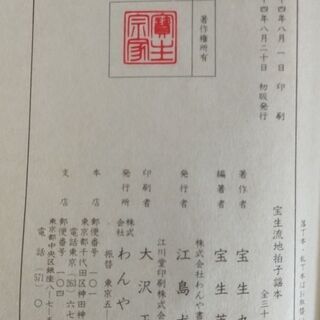 落丁本・乱丁本はお取替
宝生流地拍子謡本 全三十
著作者 宝生九
編著者 宝生英
株式会社わんや書
発行者 江島
江川堂印刷株式会
印刷者 大沢
株式会社
発行所 わんや
振替 東京五
本店 郵便番号一〇一
東京都千代田区神田神
電話東京(263)六七
支店 郵便番号一〇四
東京都中央区銀座八ー七ー五
電話(571)〇
著作権所有
寶生宗家
十四年八月一日 印刷
十四年八月二十日 初版発行